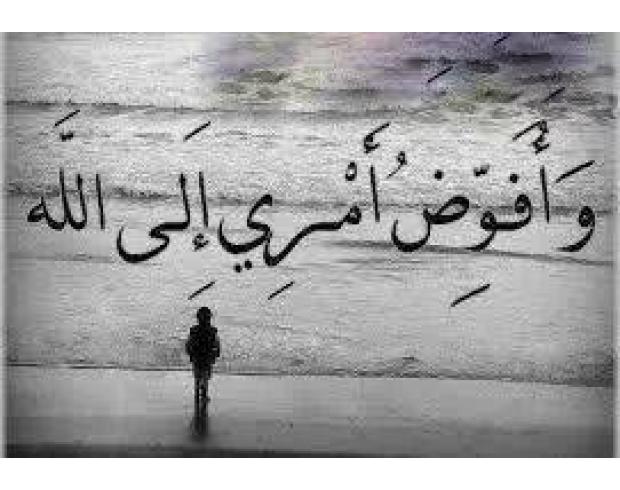 وَأُفَوِّضُ أَمْرِي إِلَى اللَّه